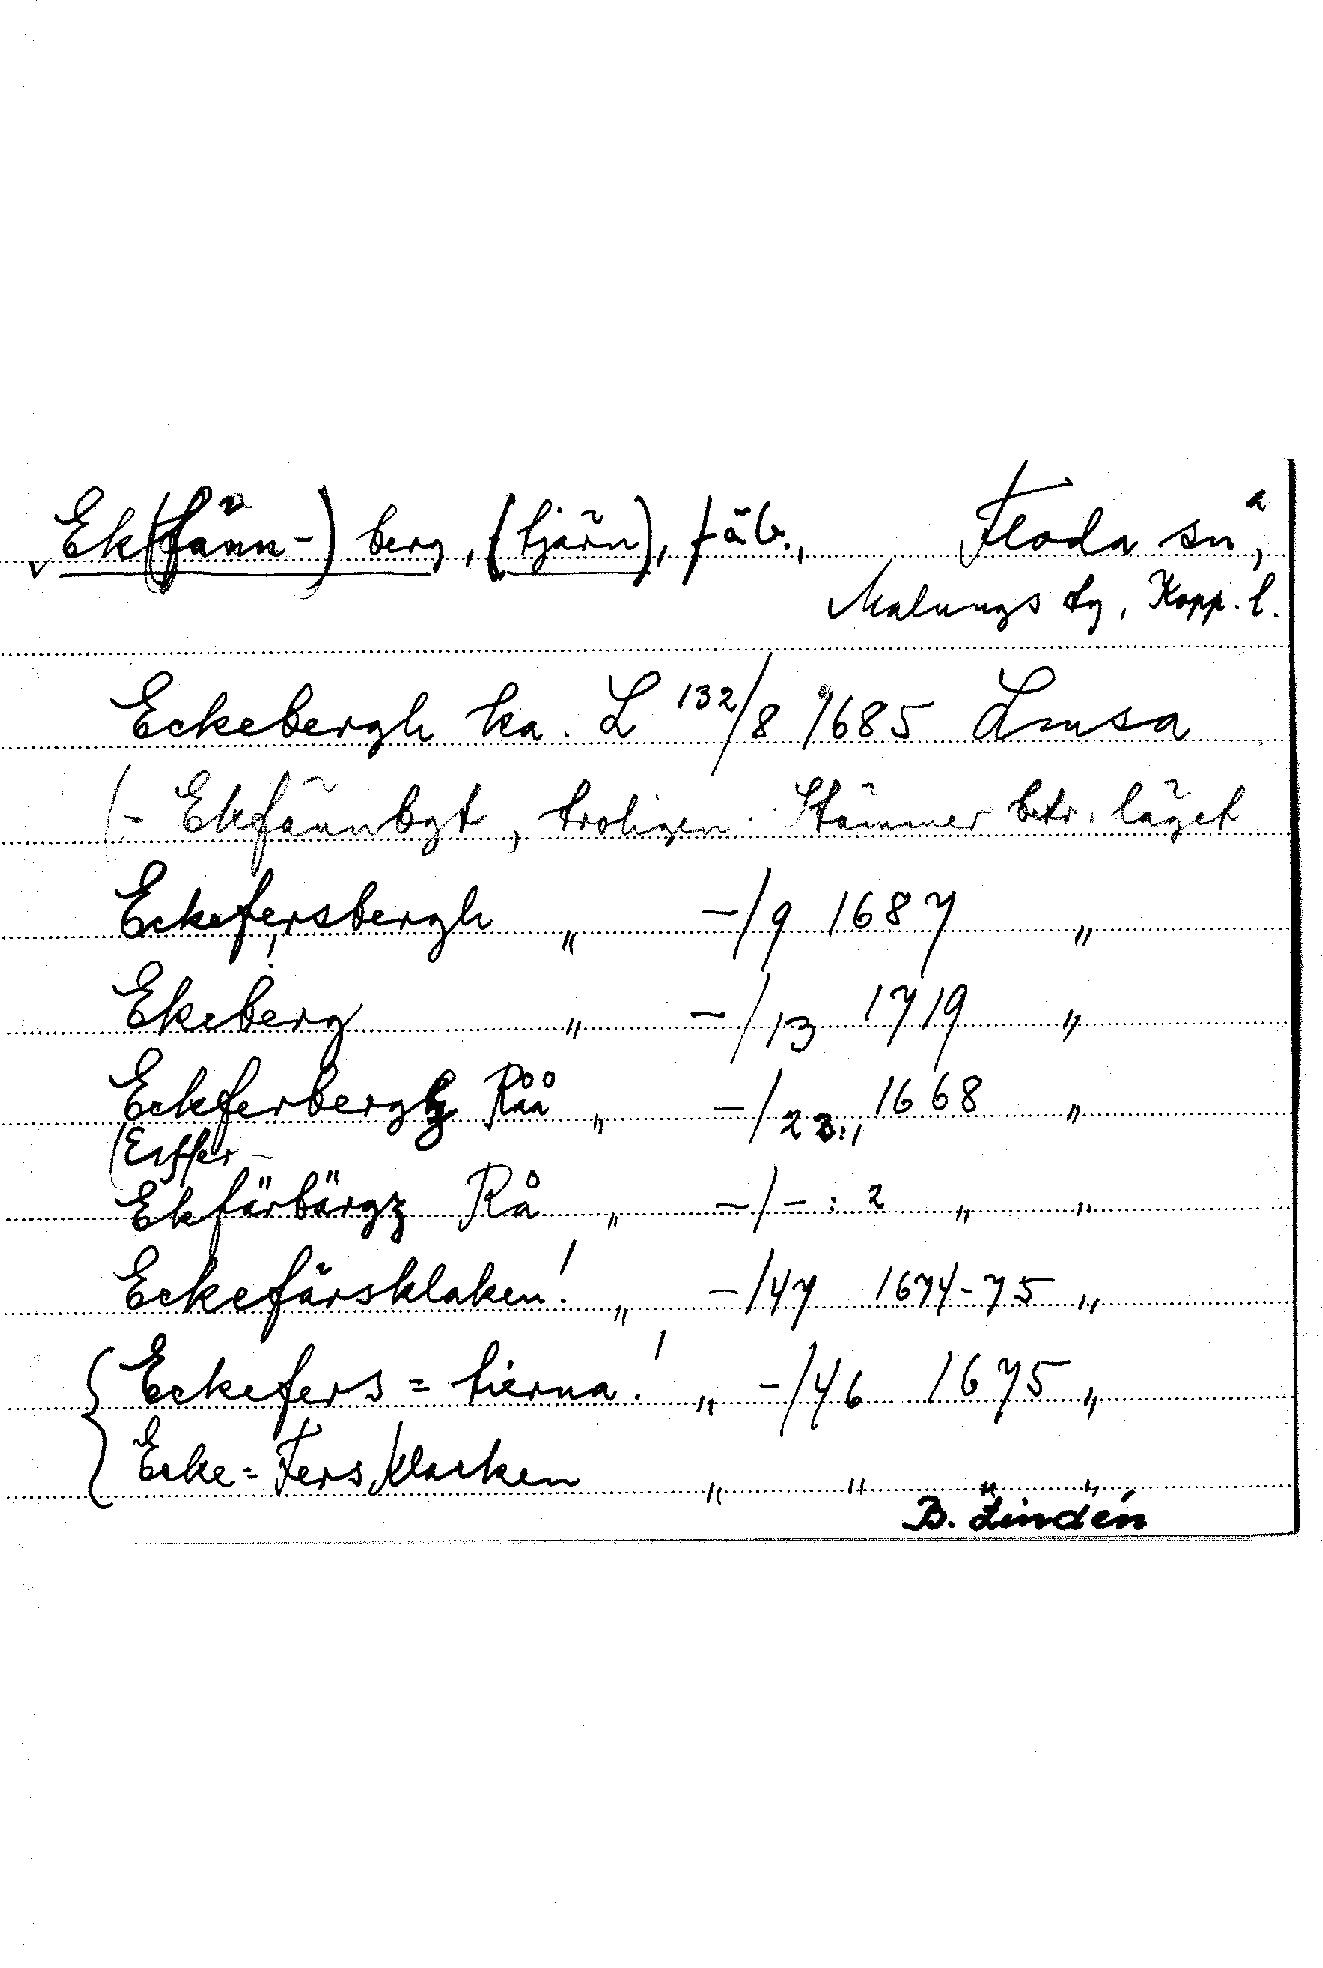 Ek(fänn-)berg, (tjärn), fäb., Floda sn,
Malungs tg, Kopp. l.
Eckebergh ka. L 132/8 1685 Lmsa
(- Ekfännbgt, troligen. Stämmer betr. läget
Eckefersbergh " -/9 1687 "
Ekeberg " -/13 1719 "
Eckferbergz Råå " -/23:1 1668 "
(Ecffer-
Ekfärbärgz Rå " -/-:2 " "
Eckefärsklaken! " -/47 1674-75 "
Eckefers=tierna! " -/46 1675 "
Ecke=Fers klacken " " " "
B. Lindén